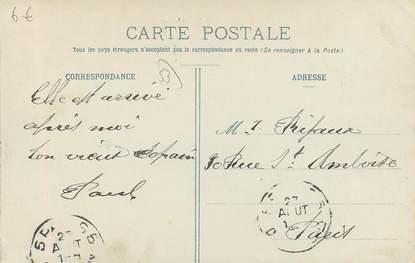 6€
CARTE POSTALE
Tous les pays étrangers n'acceptent pas la correspondance au recto (Se renseigner à la Poste)
CORRESPONDANCE
ADRESSE
53
Elle est arrivé
après moi
ton vieux copain
Paul
Mr. J. Réfaux
30 Rue St Amboise
à Paris
27
AOUT
27
AOUT